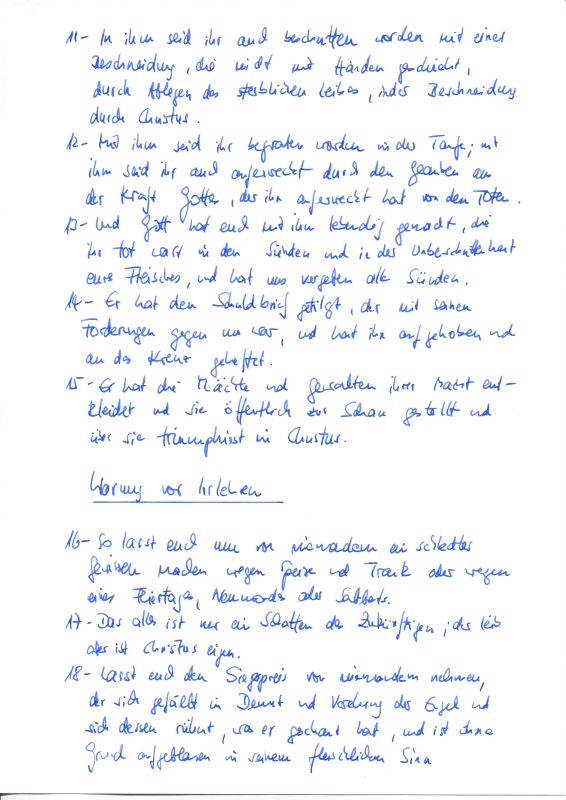 11- In ihm seid ihr auch beschnitten worden mit einer
Beschneidung, die nicht mit Händen geschieht,
durch Ablegen des sterblichen Leibes, in der Beschneidung
durch Christus.
12- Mit ihm seid ihr begraben worden in der Taufe; mit
ihm seid ihr auch auferweckt durch den Glauben aus
der Kraft Gottes, der ihn auferweckt hat von den Toten.
13- Und Gott hat euch mit ihm lebendig gemacht, die
ihr tot wart in den Sünden und in der Unbeschnittenheit
eures Fleisches, und hat uns vergeben alle Sünden.
14- Er hat den Schuldbrief getilgt, der mit seinen
Forderungen gegen uns war, und hat ihn aufgehoben und
an das Kreuz geheftet.
15- Er hat die Mächte und Gewalten ihrer Macht ent-
kleidet und sie öffentlich zur Schau gestellt und
über sie triumphiert in Christus.
Warnung vor Irrlehren
16- So lasst euch nun von niemandem ein schlechtes
Gewissen machen wegen Speise und Trank oder wegen
eines Feiertages, Neumondes oder Sabbats.
17- Das alles ist nur ein Schatten des Zukünftigen; der Leib
aber ist Christus eigen.
18- Lasst euch den Siegespreis von niemandem nehmen,
der sich gefällt in Demut und Verehrung der Engel und
sich dessen rühmt, was er geschaut hat, und ist ohne
Grund aufgeblasen in seinem fleischlichen Sinn